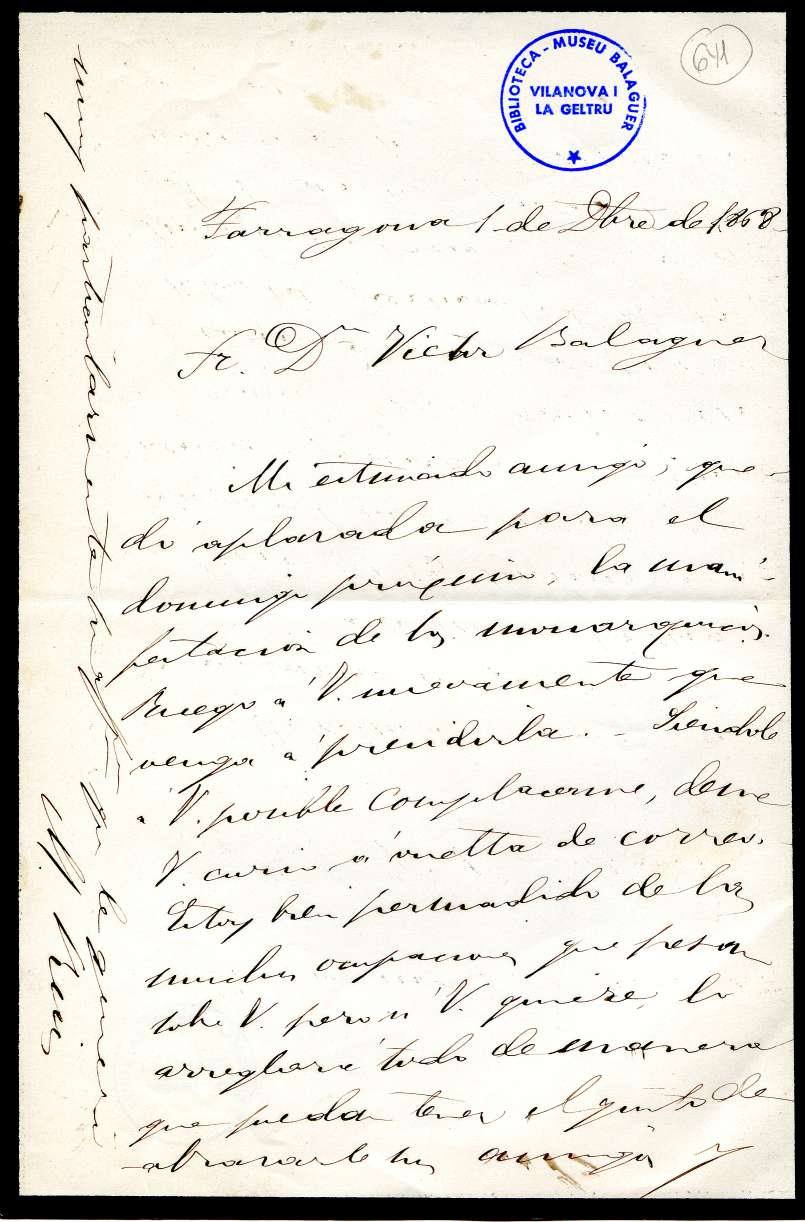 641
BIBLIOTECA - MUSEU BALAGUER
VILANOVA I
LA GELTRU
Tarragona 1 de Dbre de 1868
Sr. Dn Victor Balaguer
Mi estimado amigo; que-
dó aplasada para el
domingo próximo, la mani-
festacion de los monarquicos.
Ruego á V. nuevamente que
venga á presidirla. - Siendole
á V. posible complacerme, deme
V. aviso á vuelta de correo.
Estoy bien persuadido de las
muchas ocupaciones que pesan
sobre V. pero si V. quiere, lo
arreglará todo de manera
que puedan tener el gusto de
abrazarle sus amigos y
muy particularmente su que le quiere